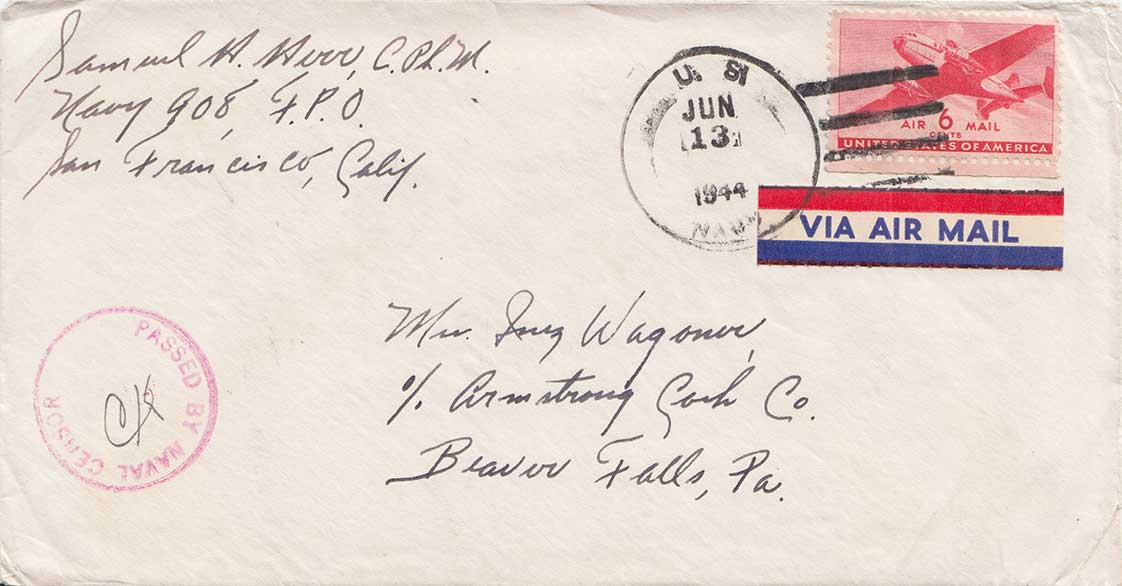 Samuel H. Herr, C.Ph.M.
Navy 908, F.P.O.
San Francisco, Calif.
U. S.
JUN
13
1944
NAVY
AIR 6 MAIL
CENTS
UNITED STATES OF AMERICA
VIA AIR MAIL
Wagoner,
c/o Armstrong Cork Co.
Beaver Falls, Pa.
PASSED BY NAVAL CENSOR